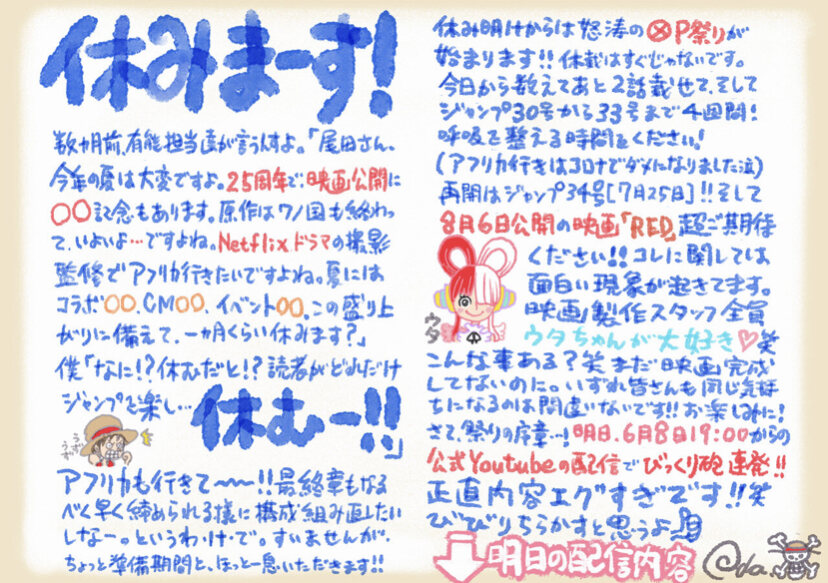 休みまーす!
数ヵ月前、有能担当達が言うんすよ。「尾田さん、
今年の夏は大変ですよ。25周年で、映画公開に
〇〇記念もあります。原作はワノ国も終わっ
て、いよいよ…ですよね。Netflixドラマの撮影
監修でアフリカ行きたいですよね。夏には
コラボ〇〇、CM〇〇、イベント〇〇。この盛り上
がりに備えて、一ヵ月くらい休みます?」
僕「なに!?休むだと!?読者がどれだけ
ジャンプを楽し…
休むー!!」
うず
うず
アフリカも行きて〜〜!!最終章もなる
べく早く締められる様に構成組み直したい
しなー。というわ・け・で。すいませんが、
ちょっと準備期間と、ほっと一息いただきます!!
休み明けからは怒涛の ⓍP祭りが
始まります!!休載はすぐじゃないです。
今日から数えてあと2話載せて、そして
ジャンプ30号から33号まで4週間!
呼吸を整える時間をください!
(アフリカ行きはコロナでダメになりました泣)
再開はジャンプ34号[7月25日]!!そして
8月6日公開の映画「RED」超ご期待
ください!!コレに関しては
面白い現象が起きてます。
映画製作スタッフ全員
ウタちゃんが大好き♡笑
ウタ
こんな事ある?笑 まだ映画完成
してないのに。いずれ皆さんも同じ気持
ちになるのは間違いないです!!お楽しみに!
さて、祭りの序章…!明日、6月8日19:00からの
公式Youtubeの配信でびっくり砲連発!!
正直内容エグすぎです!!笑
びびりちらかすと思うよ
明日の配信内容
Oda.